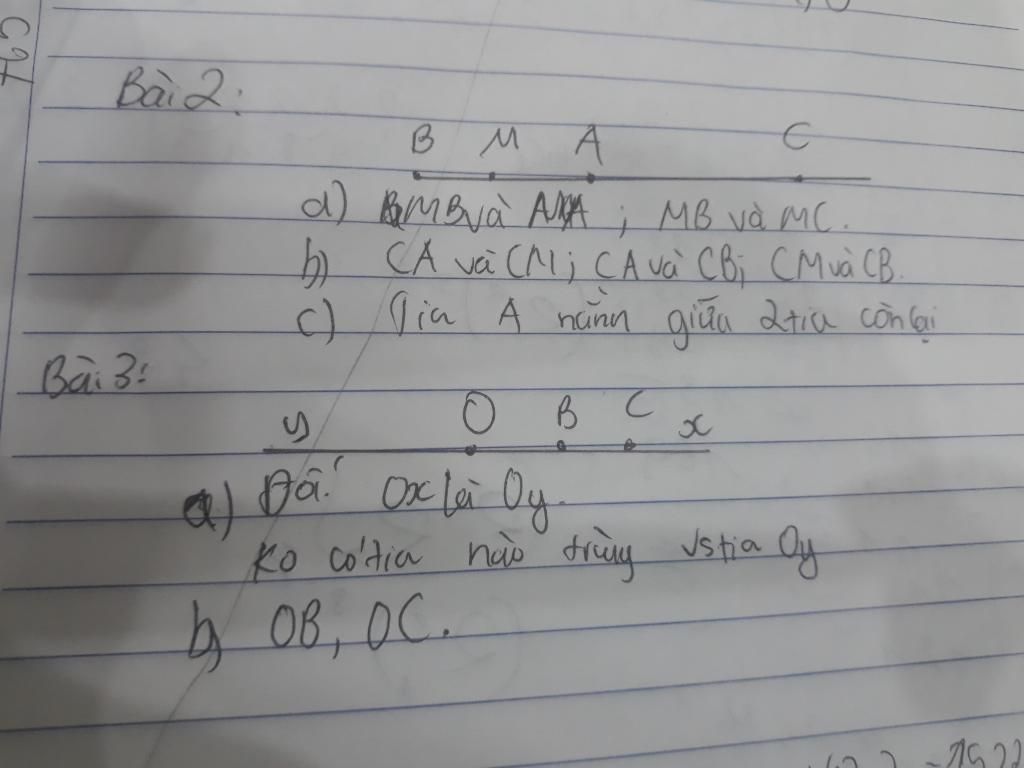 Bài 2:
B M A C
a) MB và MA ; MB và MC.
b) CA và CM; CA và CB; CM và CB.
c) Tia A nằm giữa 2 tia còn lại
Bài 3:
y O B C x
a) Đối Ox là Oy.
Ko có tia nào trùng vs tia Oy
b) OB, OC.